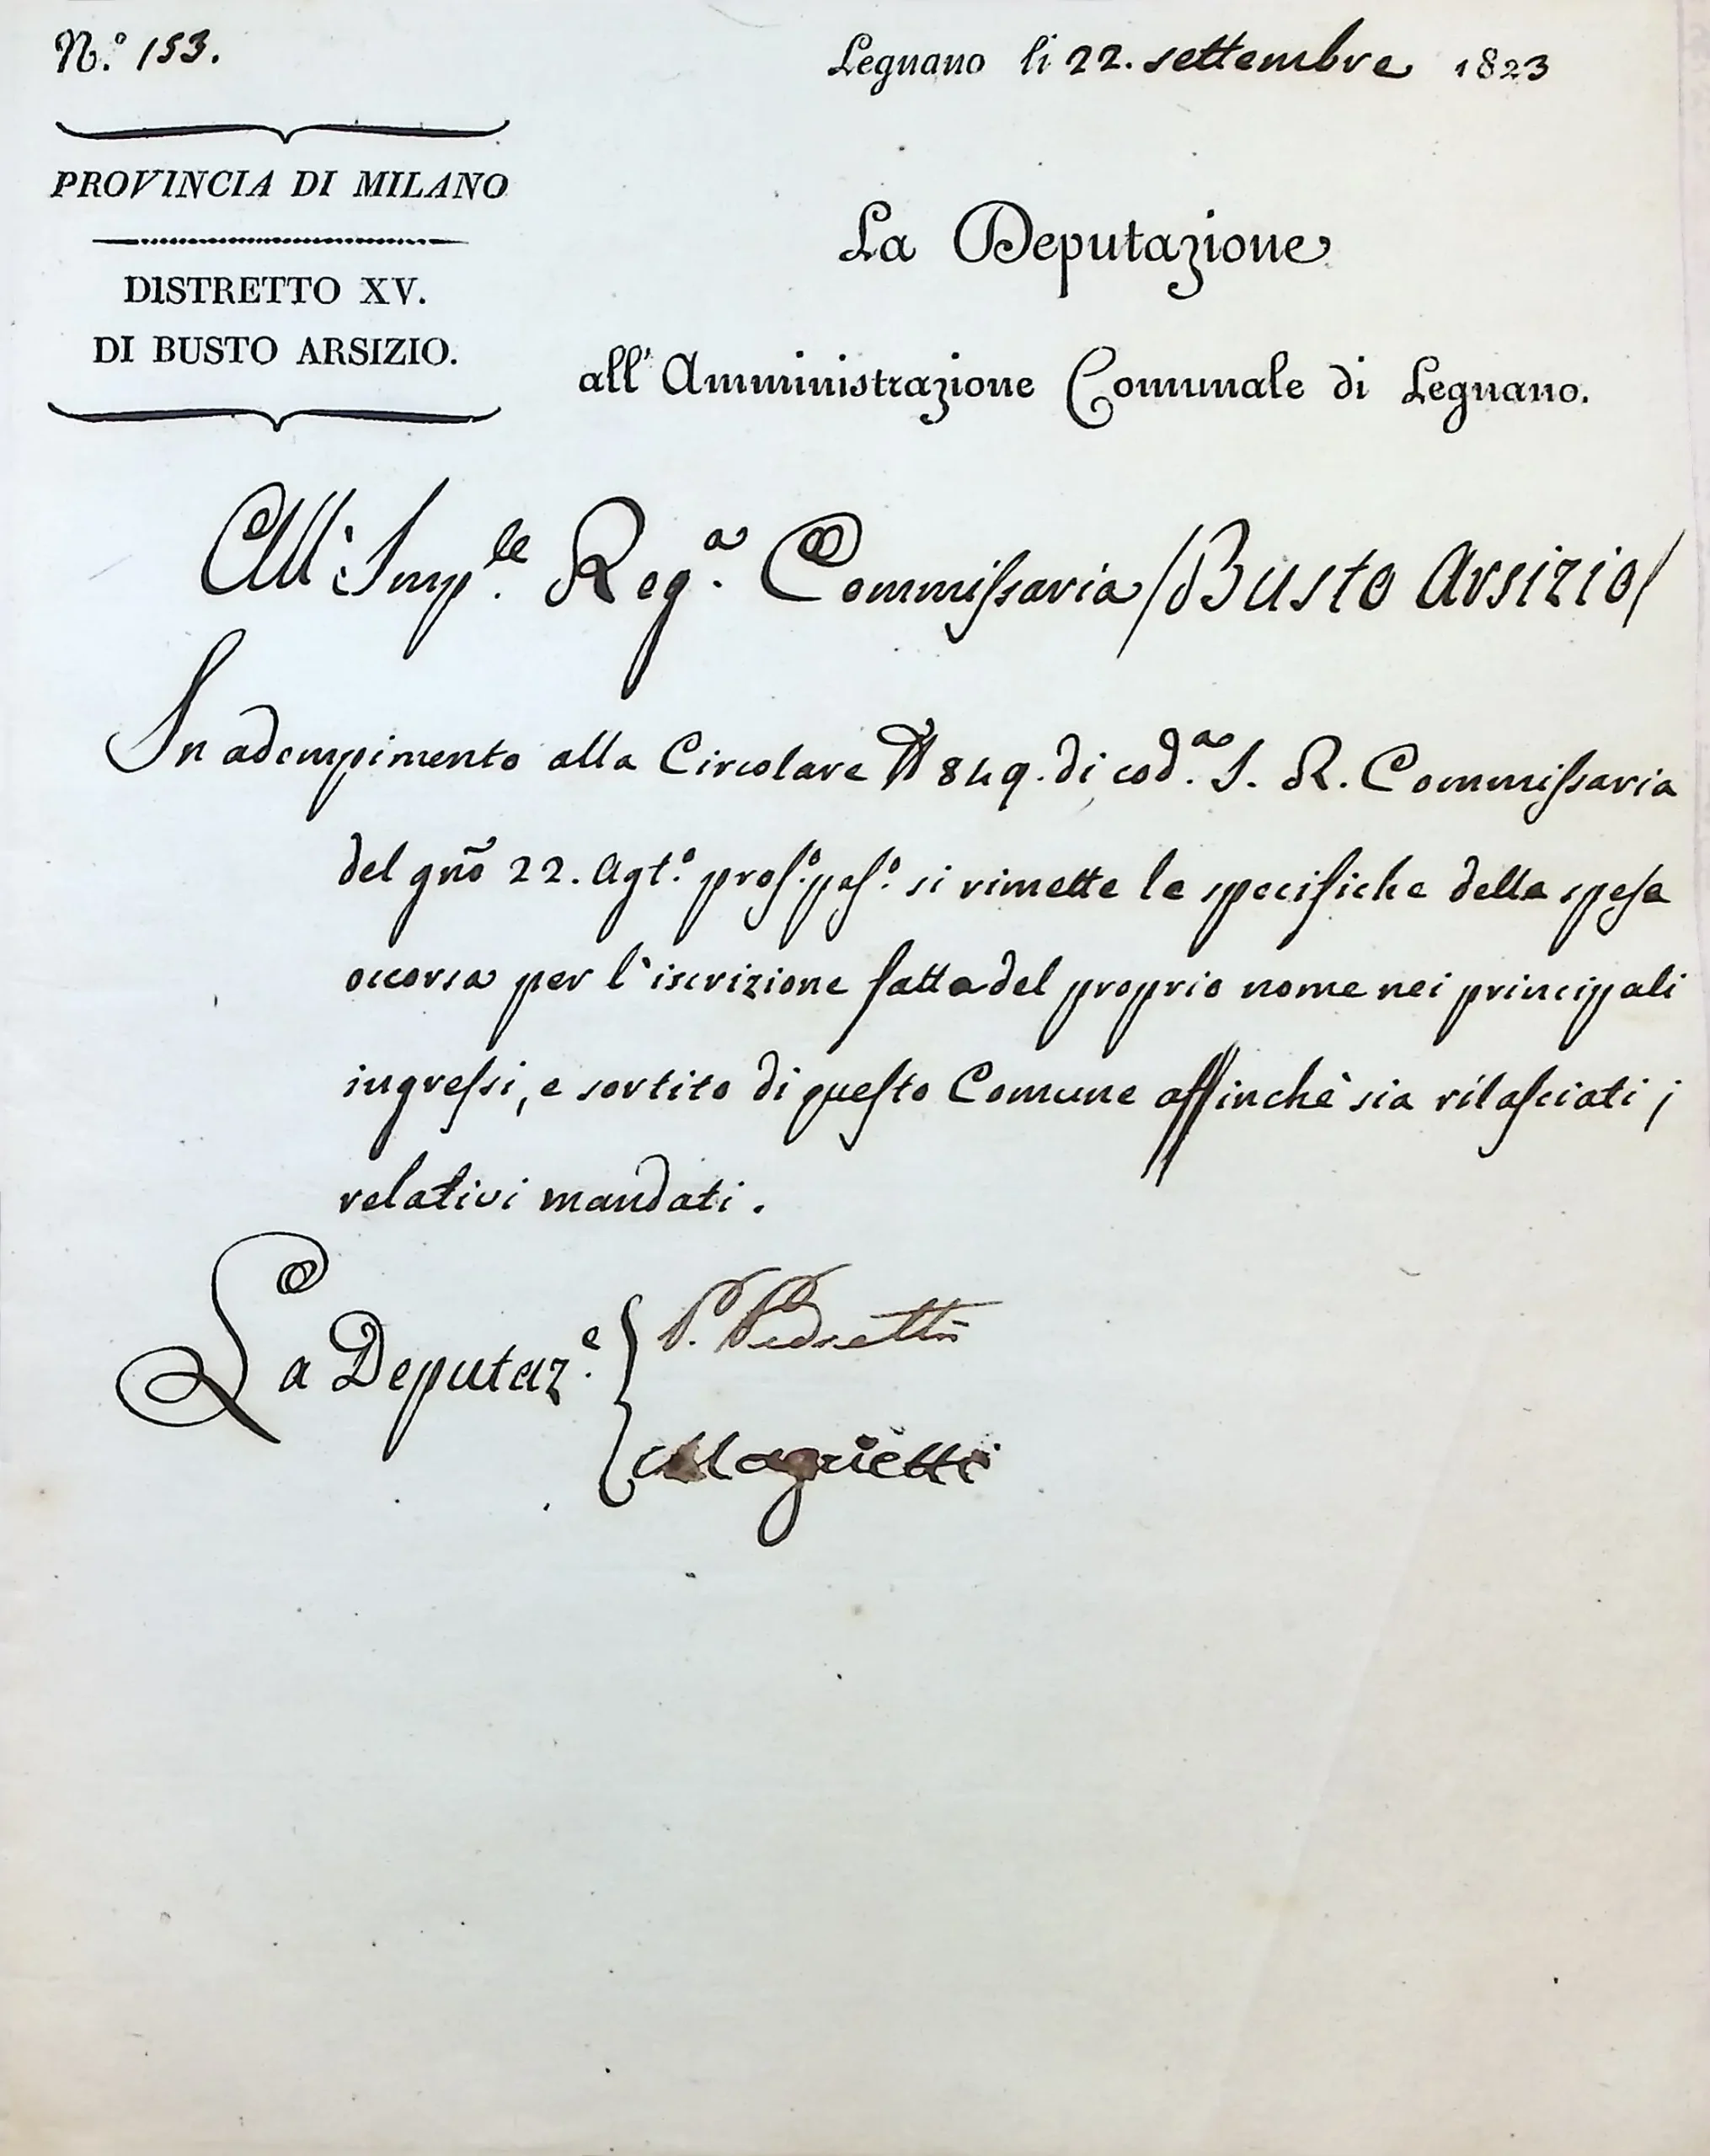 N.º 153.
Legnano li 22. settembre 1823
PROVINCIA DI MILANO
DISTRETTO XV.
DI BUSTO ARSIZIO.
La Deputazione
all'Amministrazione Comunale di Legnano.
All'Imp.le Reg.a Commissaria /Busto Arsizio/
In adempimento alla Circolare N 849. di cod.a I. R. Commissaria
del gno 22. Agt.o pros.o pas.o si rimette le specifiche della spesa
occorsa per l'iscrizione fatta del proprio nome nei principali
ingressi, e sortito di questo Comune affinchè sia rilasciati i
relativi mandati.
La Deputaz.e